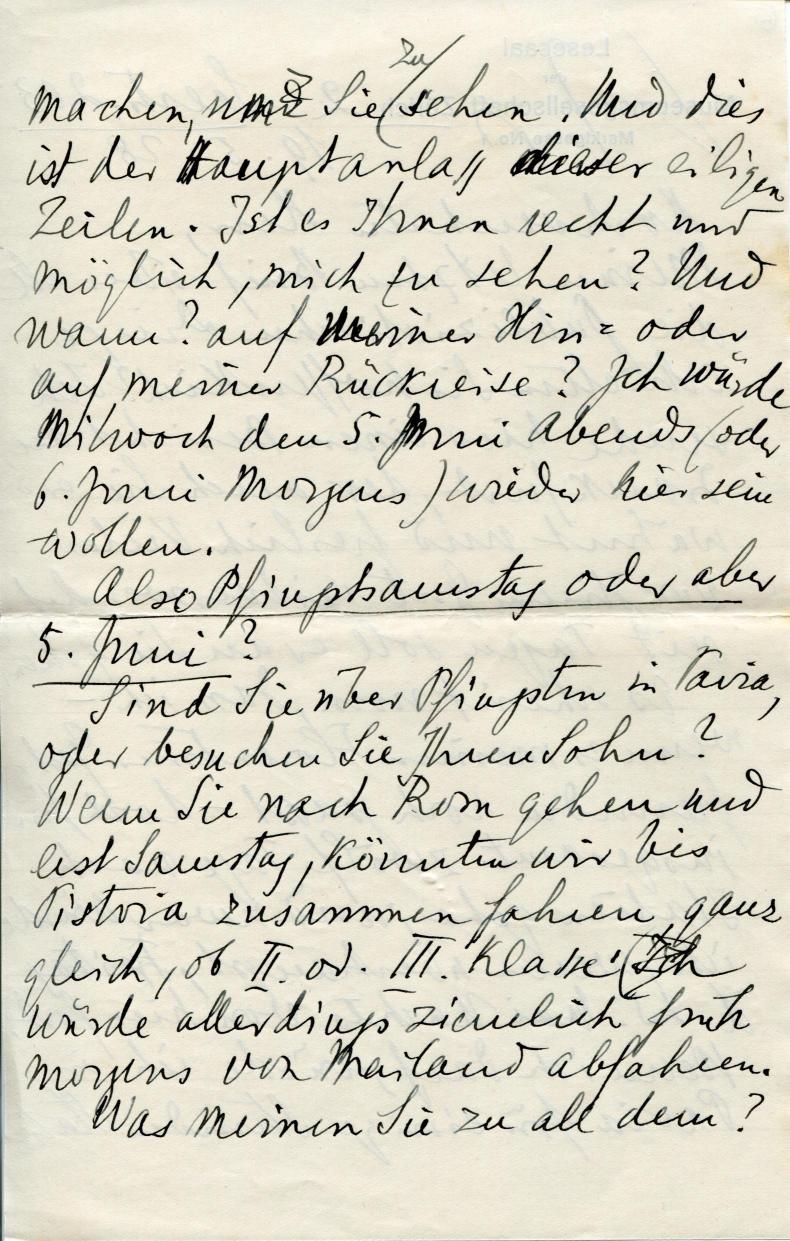 machen, um Sie zu sehen. Und dies
ist der Hauptanlaß dieser eiligen
Zeilen. Ist es Ihnen recht und
möglich, mich zu sehen? Und
wann? auf meiner Hin= oder
auf meiner Rückreise? Ich würde
Mitwoch den 5. Juni Abends (oder
6. Juni Morgens) wieder hier sein
wollen.
Also Pfingstsamstag oder aber
5. Juni?
Sind Sie über Pfingsten in Pavia,
oder besuchen Sie Ihren Sohn?
Wenn Sie nach Rom gehen und
erst Samstag, könnten wir bis
Pistoia zusammen fahren, ganz
gleich, ob II. od. III. Klasse! (Ich
würde allerdings ziemlich früh
morgens von Mailand abfahren.
Was meinen Sie zu all dem?